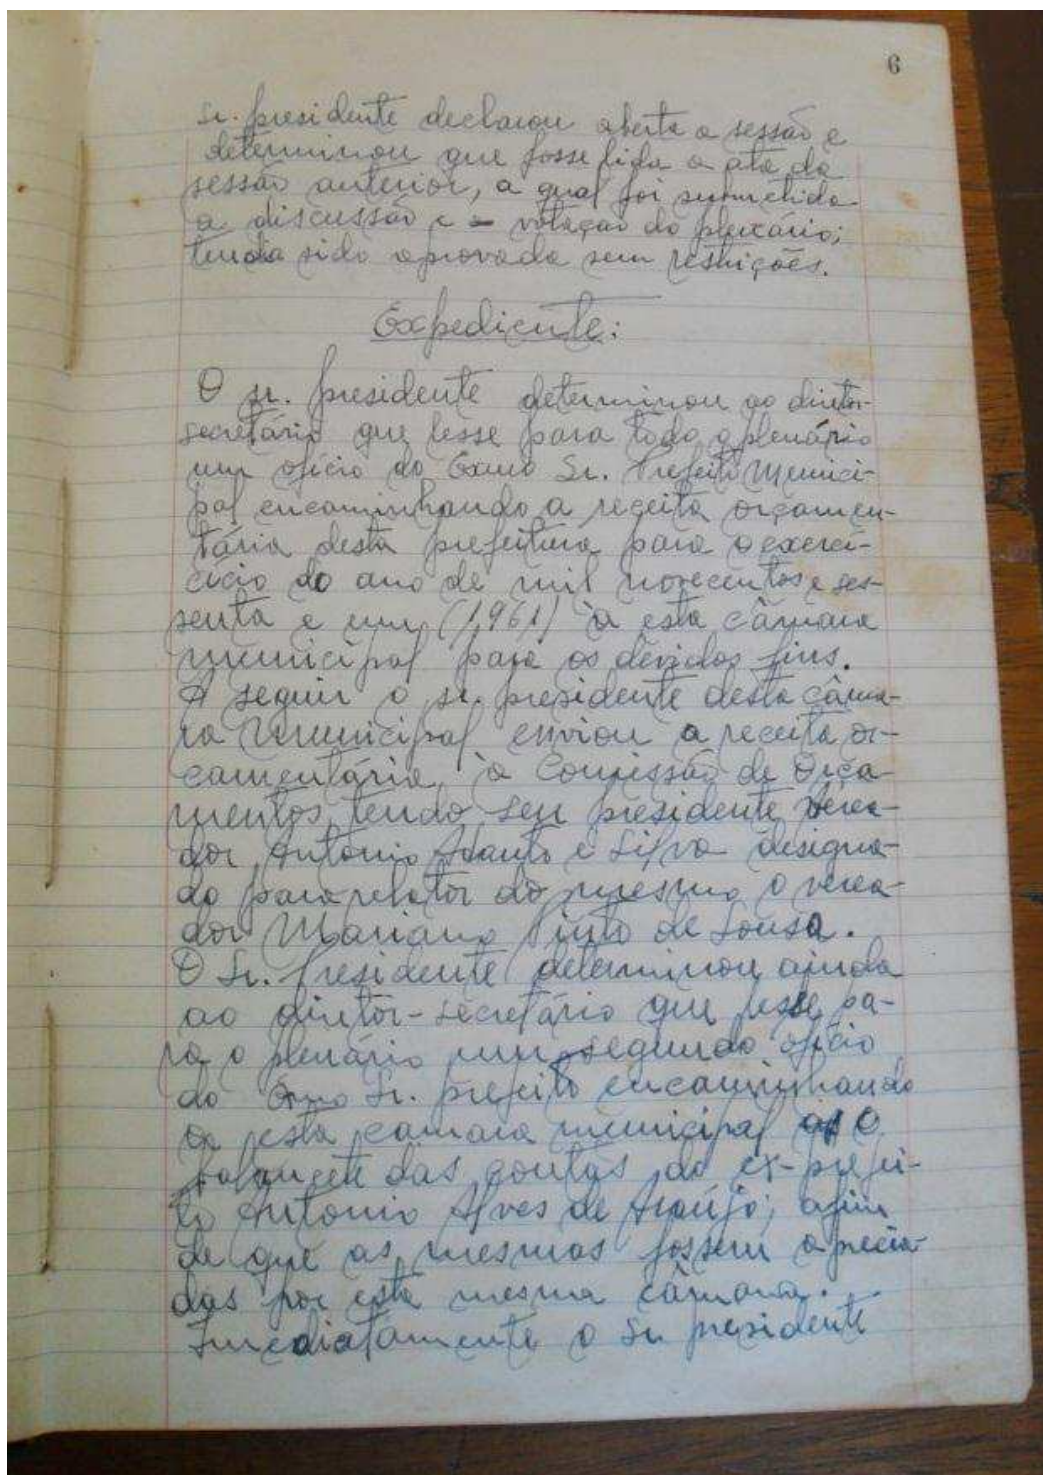 6
Sr. presidente declarou aberta a sessão e
determinou que fosse lida a ata da
sessão anterior, a qual foi submetida
a discussão e a votação do plenário;
tendo sido aprovada sem restrições.
Expediente:
O sr. presidente determinou ao diretor
secretário que lesse para todo o plenário
um ofício do Exmo Sr. Prefeito Munici-
pal encaminhando a receita orçamen-
tária desta prefeitura para o exercí-
cício do ano de mil novecentos e ses-
senta e um (1,961) à esta câmara
municipal para os devidos fins.
A seguir o sr. presidente desta câma-
ra Municipal enviou a receita or-
camentária, à Comissão de Orça-
mentos, tendo seu presidente verea-
dor Antônio e Silva designa-
do para relator do mesmo o verea-
dor Mariano Pinto de Sousa.
O Sr. Presidente determinou ainda
ao diretor-secretário que lesse pa-
ra o plenário um segundo ofício
do Exmo Sr. prefeito encaminhando
a esta camara municipal o
balancete das contas do ex-prefei-
to Antonio Alves de Araújo; afim
de que as mesmas fossem aprecia-
das por esta mesma câmara.
Imediatamente o Sr presidente